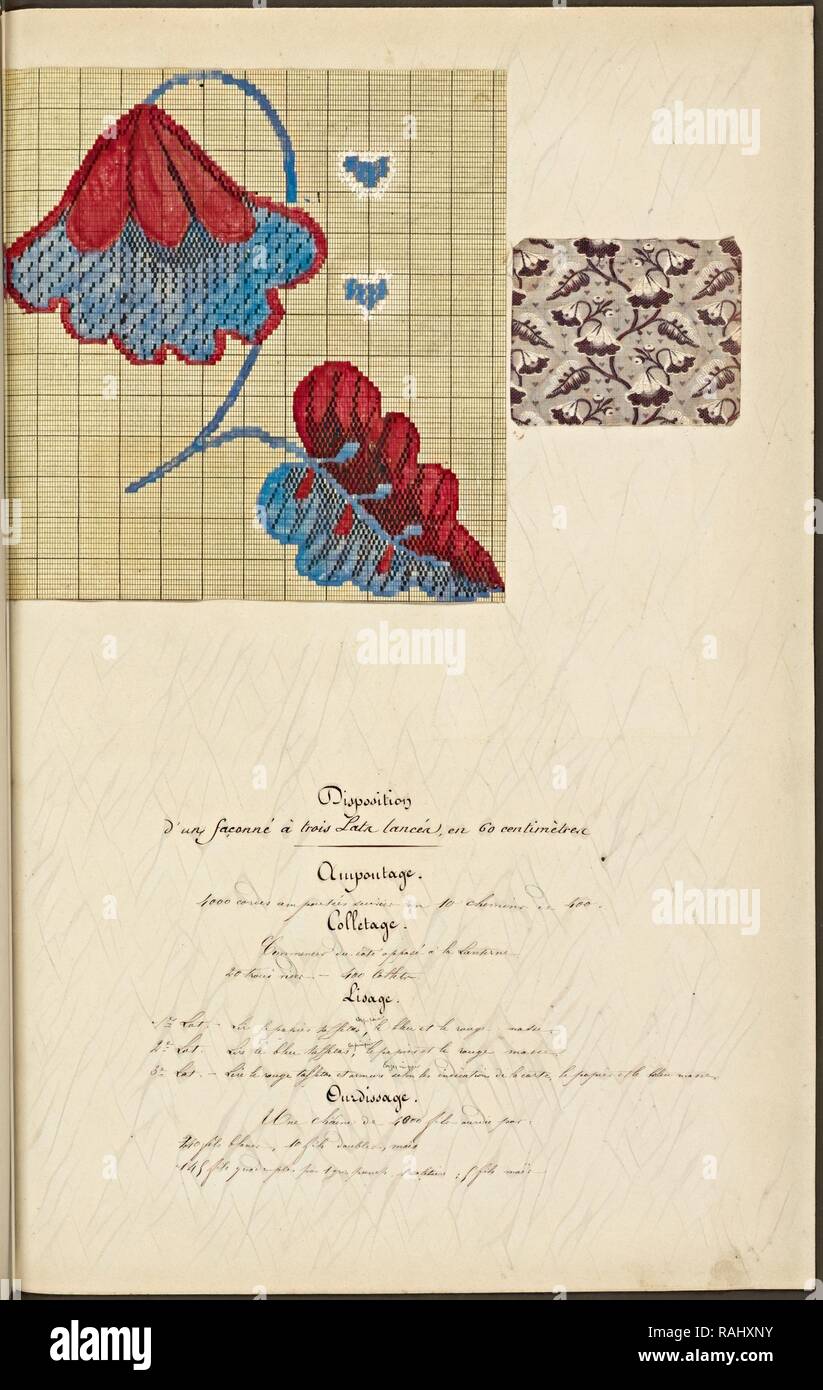 Disposition
d'un façonné à trois Lats lancés, en 60 centimètres
Ampoutage.
4000 cordes ampoutées suivies en 10 chemins de 400.
Colletage.
Commencer du côté opposé à la Lanterne
20 trous - 400 Collets
Lisage.
1er Lat. - Lire le papier taffetas, le bleu et le rouge masse.
2e Lat. Lire le bleu taffetas, le papier et le rouge masse.
3e Lat. - Lire le rouge taffetas et armure selon les indications de la carte, le papier et le bleu masse.
Ourdissage.
Une chaîne de 4800 fils ourdie par:
fils blanc, 10 fils doubles, maïs
145 fils ; 5 fils maïs
alamy
Image ID: RAHXNY
www.alamy.com